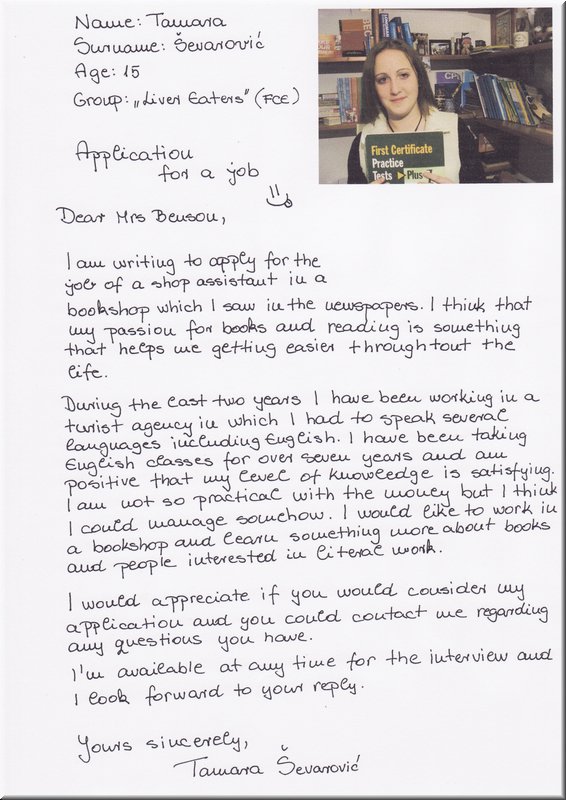 Name: Tamara
Surname: Ševarović
Age: 15
Group: „Liver Eaters" (FCE)
First Certificate
Practice
Tests Plus
Application
for a job
Dear Mrs Benson,
I am writing to apply for the
job of a shop assistant in a
bookshop which I saw in the newspapers. I think that
my passion for books and reading is something
that helps me getting easier throughtout the
life.
During the last two years I have been working in a
turist agency in which I had to speak several
languages including English. I have been taking
English classes for over seven years and am
positive that my level of knowledge is satisfying.
I am not so practical with the money but I think
I could manage somehow. I would like to work in
a bookshop and learn something more about books
and people interested in literal work.
I would appreciate if you would consider my
application and you could contact me regarding
any questions you have.
I'm available at any time for the interview and
I look forward to your reply.
Yours sincerely,
Tamara Ševarović